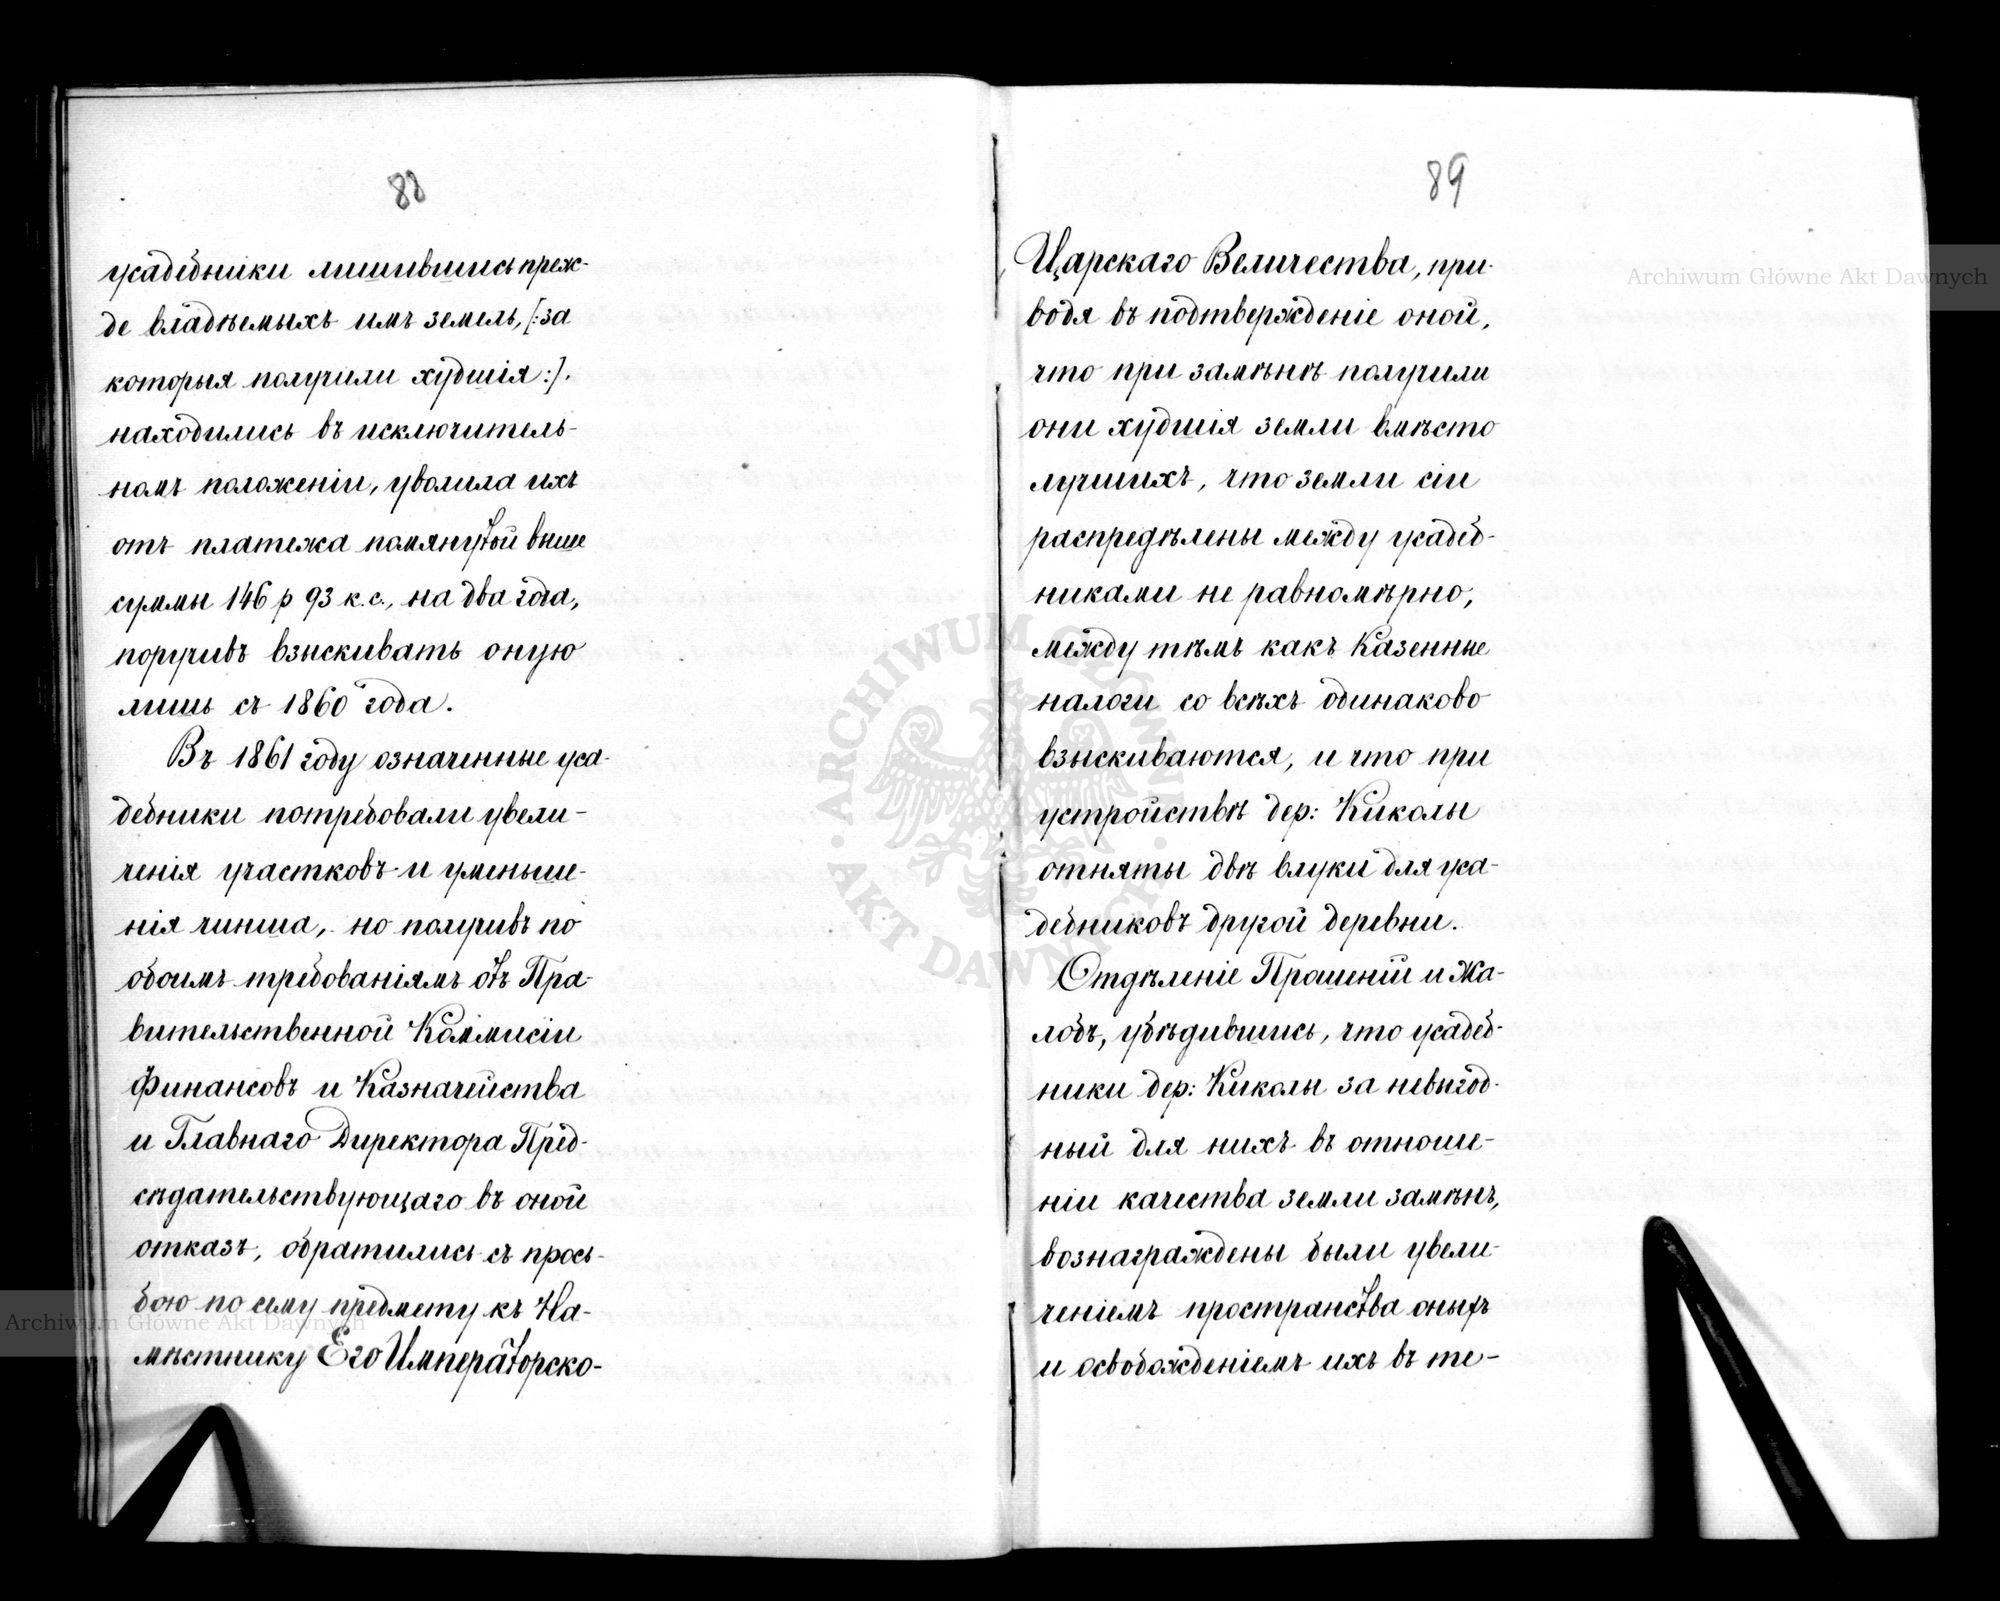 88
усадебники лишившись преж-
де владѣемыхъ имъ земель, [:за
которыя получили худшія:].
находились въ исключитель-
номъ положеніи, уволила ихъ
отъ платежа помянутой выше
суммы 146 р 93 к.с., на два года,
поручивъ взыскивать оную
лишь съ 1860 года.
Въ 1861 году означенные уса-
дебники потребовали увели-
ченія участковъ и уменьше-
нія чинша, но получивъ по
обоимъ требованіямъ отъ Пра-
вительственной Коммисіи
Финансовъ и Казначейства
и Главнаго Директора Пред-
сѣдательствующаго въ оной
отказъ, обратились съ прось-
бою по сему предмету къ На-
мѣстнику Его Императорско-
89
Царскаго Величества, при-
водя въ подтвержденіе оной,
что при замѣнѣ получили
они худшія земли вмѣсто
лучшихъ, что земли сіи
распредѣлены между усадеб-
никами не равномѣрно,
между тѣмъ какъ Казенные
налоги со всѣхъ одинаково
взыскиваются, и что при
устройствѣ дер: Киколы
отняты двѣ влуки для уса-
дебниковъ другой деревни.
Отдѣленіе Прошеній и Жа-
лобъ, убѣдившись, что усадеб-
ники дер: Киколы за невыгод-
ный для нихъ въ отноше-
ніи качества земли замѣнъ,
вознаграждены были увели-
ченіемъ пространства оныхъ
и освобожденіемъ ихъ въ те-
Archiwum Główne Akt Dawnych
Archiwum Główne Akt Dawnych
ARCHIWUM GŁÓWNE AKT DAWNYCH